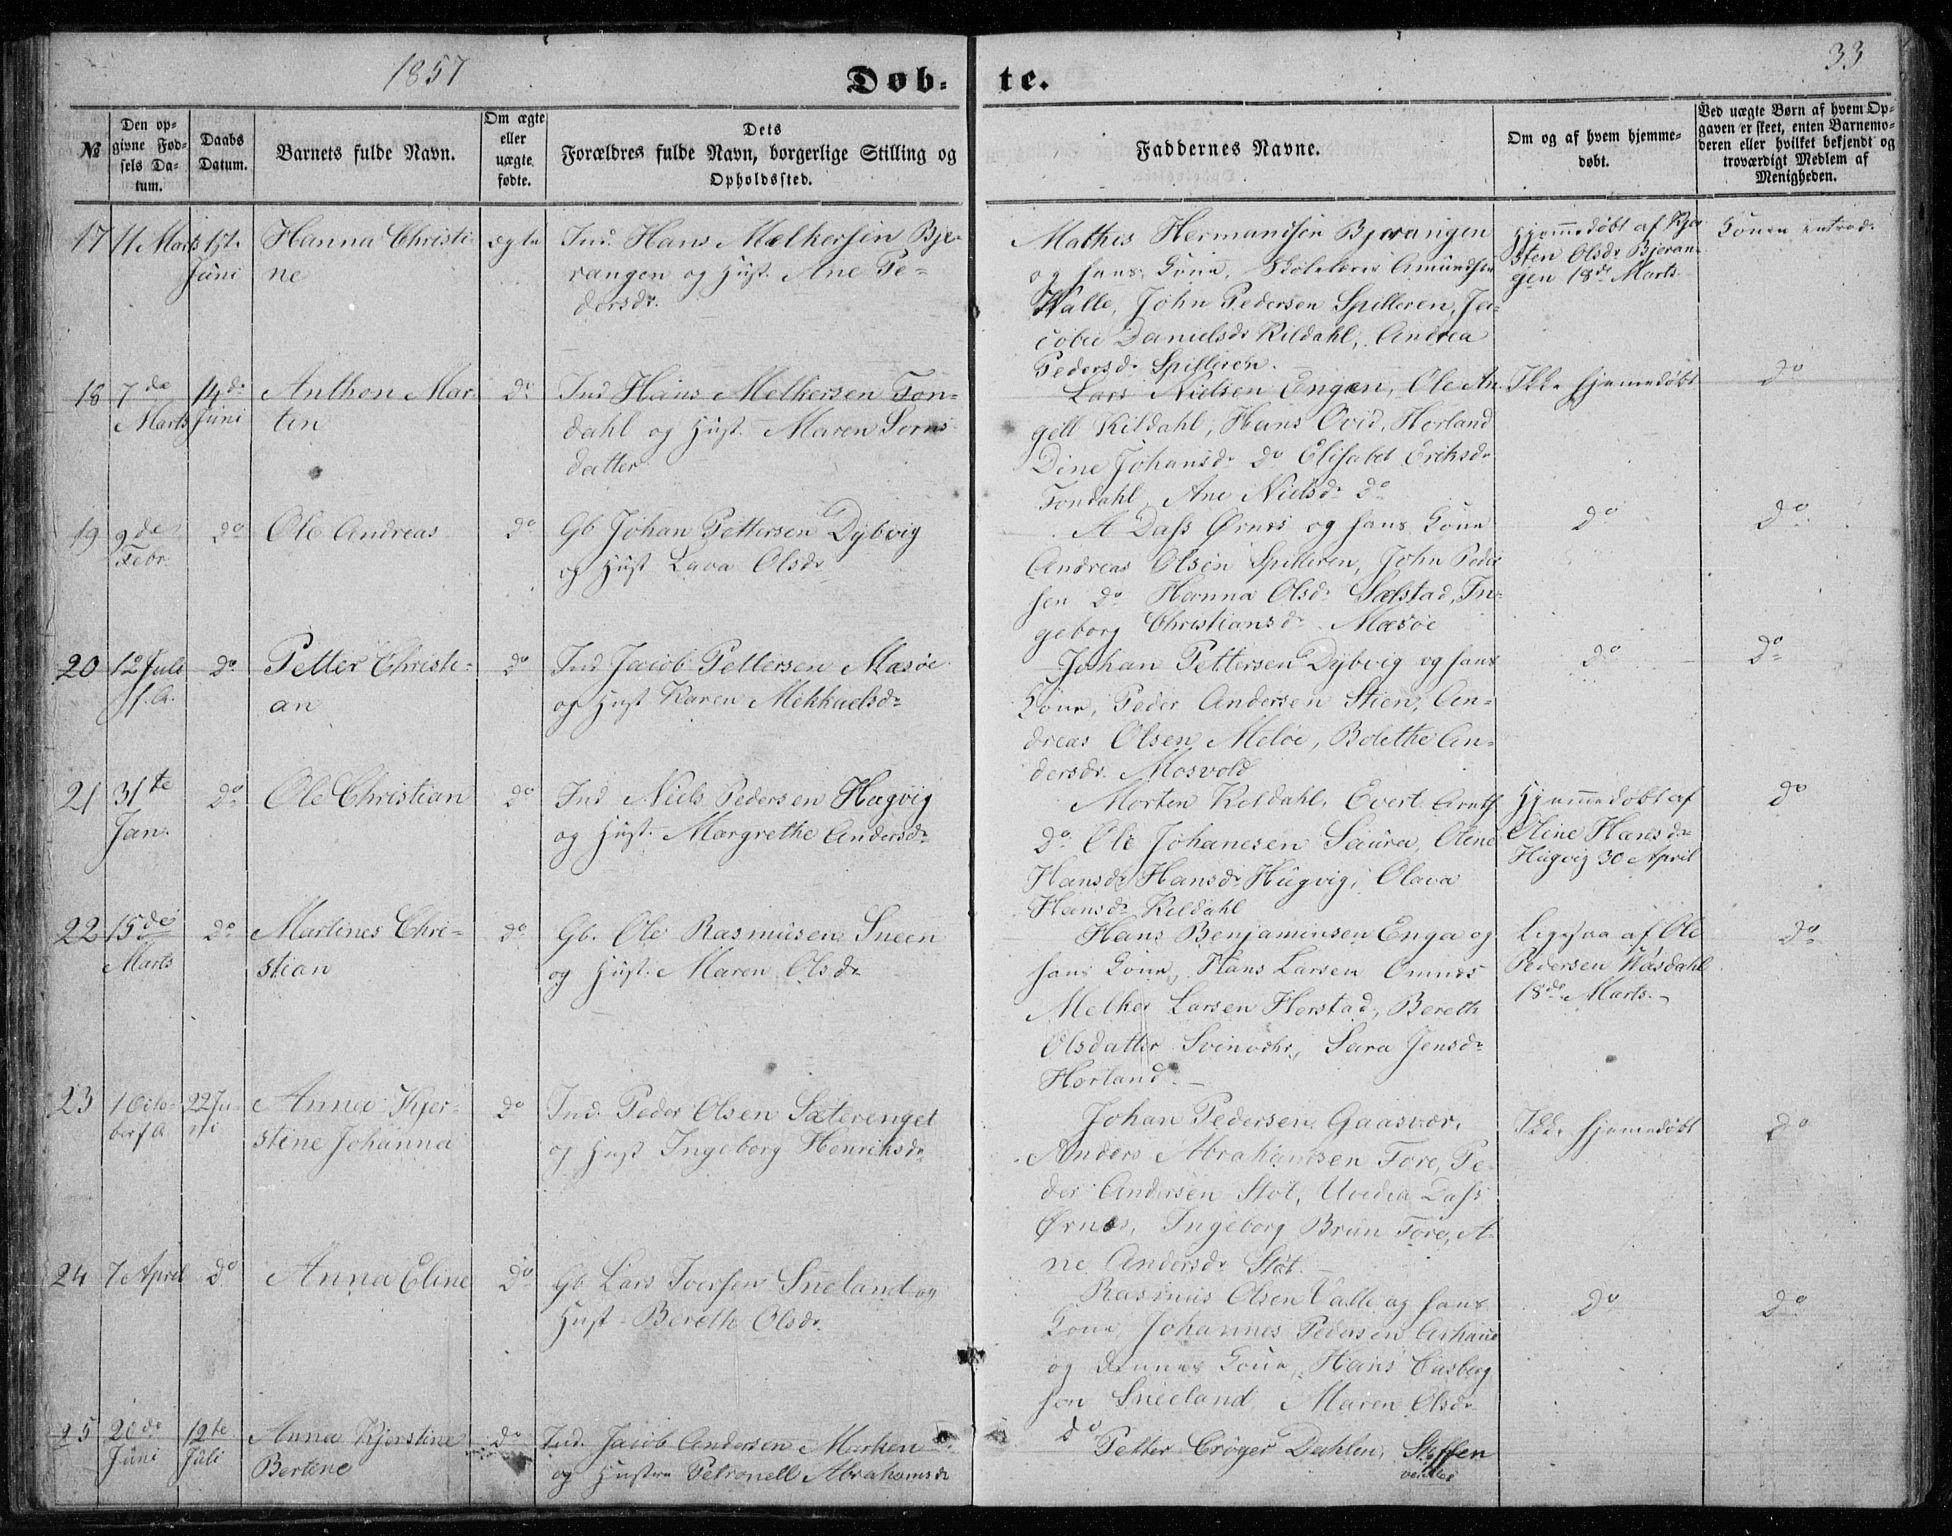 1857
33
Døb-
te.
№
Den op-
givne Fød-
sels Da-
tum.
Daabs
Datum.
Barnets fulde Navn.
Om ægte
eller
uægte
fødte.
Dets
Forældres fulde Navn, borgerlige Stilling og
Opholdssted.
Faddernes Navne.
Om og af hvem hjemme-
døbt.
Ved uægte Børn af hvem Op-
gaven er skeet, enten Barnemo-
deren eller hvilket bekjendt og
troværdigt Medlem af
Menigheden.
17 11 Marts 1ste Juni
Hanna Christi-
ne
ægte
Ind. Hans Melkersen Bje-
rangen og Hust. Ane Pe-
dersdr.
Mathis Hermandsen Bjerangen
og hans Kone, Skolelærer Amundsen
Walle, John Pedersen Spilleren, Ja-
cobie Danielsdr Kildahl, Andrea
Pedersdr Spilleren.
Hjemmedøbt af Kje-
sten Olsdr Bjeran-
gen 18de Marts
Konen introd.
18 7de Marts 14de Juni
Anthon Mar-
tin
do
Ind Hans Melkersen Fon-
dahl og Hust. Maren Sørns
datter
Lars Nielsen Engen, Ole An-
gell Kildahl, Hans Ovid, Horland
Dine Johansdr do Elisabet Eriksdr
Fondahl, Ane Nielsdr do
Ikke hjemmedøbt
do
19 9de Febr. do
Ole Andreas
do
Gb Johan Pettersen Dybvig
og Hust Lava Olsdr
A Dass Ørnes og hans Kone
Andreas Olsen Spilleren, John Peder
sen do Hanna Olsdr Selstad, In-
geborg Christiansdr Mesøe
do
do
20 12 Juli f. A. do
Petter Christi-
an
do
Ind Jacob Pettersen Mesøe
og Hust Karen Mekkaelsdr
Johan Pettersen Dybvig og hans
Kone, Peder Andersen Stien, An-
dreas Olsen Meløe, Bolethe An-
dersdr Mosvold
do
do
21 31te Jan. do
Ole Christian
do
Ind Niels Pedersen Hugvig
og Hust. Margrethe Andersdr
Morten Kildahl, Evert Arntf
do Ole Johanesen Saura, Oline
Hansdr Hansdr Hugvig, Olava
Hansdr Kildahl
Hjemmedøbt af
Oline Hansdr
Hugvig 30 April
do
22 15de Marts do
Martines Chri-
stian
do
Gb. Ole Rasmusen Sneen
og Hust. Maren Olsdr
Hans Benjaminsen Enga og
hans Kone, Hans Larsen Omnes
Melker Larsen Horstad, Bereth
Olsdatter Svinvær, Sara Jensdr
Horland
Ligesaa af Ole
Pedersen Wasdahl
18de Marts
do
23 1 Octo-
ber f A 22 Ju-
ni
Anna Kjer-
stine Johanna
do
Ind. Peder Olsen Sæterenget
og Hust Ingeborg Henriksdr
Johan Pedersen Gaasvær,
Anders Abrahamsen Fore, Pe-
der Andersen Støt, Uvedia Dass
Ørnes, Ingeborg Brun Fore, A-
ne Andersdr Støt
Ikke hjemmedøbt
do
24 7 April do
Anna Eline
do
Gb Lars Iversen Sneland og
Hust - Bereth Olsdr
Rasmus Olsen Valle og hans
Kone, Johannes Pedersen Arhaue
og dennes Kone, Hans
sen Sneeland Maren Olsdr
do
do
do
25 20de Juni 12te Juli
Anna Kjerstine
Bertine
do
Ind. Jacob Andersen Marken
og Hustru Petronell Abrahamsdr
Petter Crøger Dahlen, Steffen